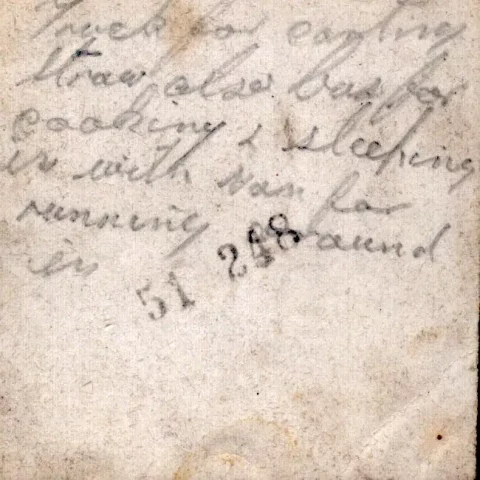 Truck for carting
straw also bus for
cooking & sleeping
in with van for
running around
in
51 248